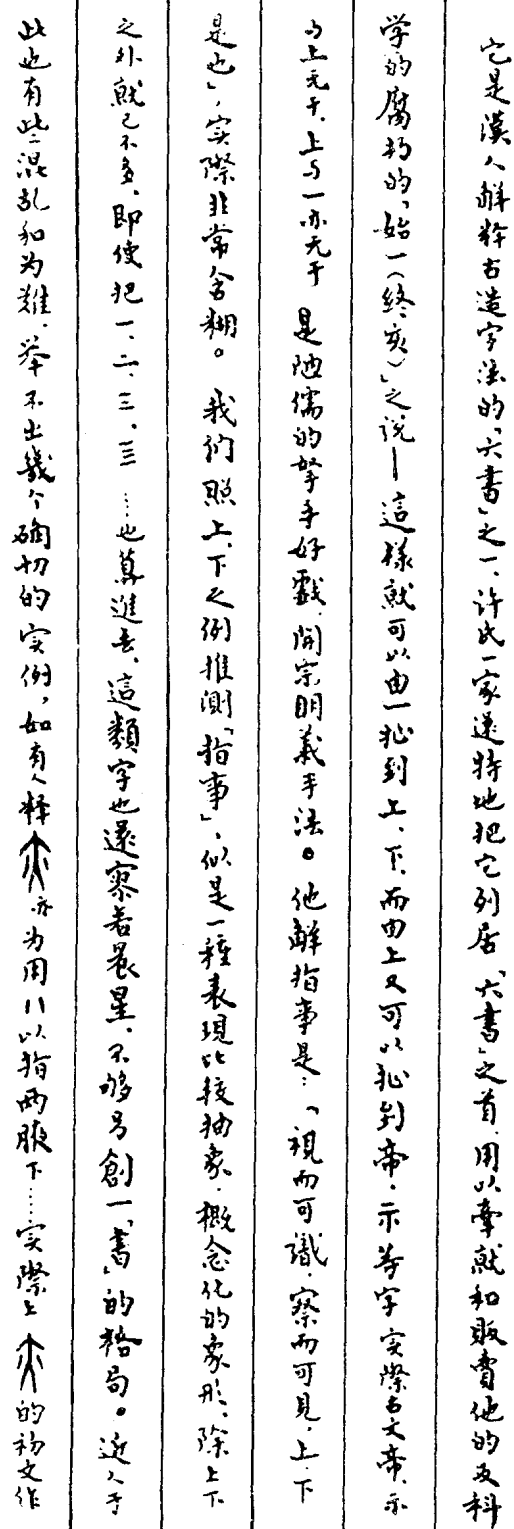 它是漢人解释古造字法的「六書」之一、许氏一家还特地把它列居「六書」之首、用以牽就和販賣他的反科
学的腐朽的「始一(终亥)」之说—這樣就可以由一扯到上、下、而由上又可以扯到帝、示等字 实際古文帝、示
与上无干、上与一亦无干 是陋儒的拏手好戲、開宗明義手法。他解指事是:「視而可識、察而可見、上、下
是也」,实際非常含糊。我们照上、下之例推測「指事」、似是一種表現比较抽象、概念化的象形、除上下
之外就已不多、即使把一、二、三、亖……也算進去、這類字也還寥若晨星、不够另創一「書」的格局。近人于
此也有些混乱和为難、举不出幾个确切的实例,如有人释亦为用八以指两腋下……实際上的初文作